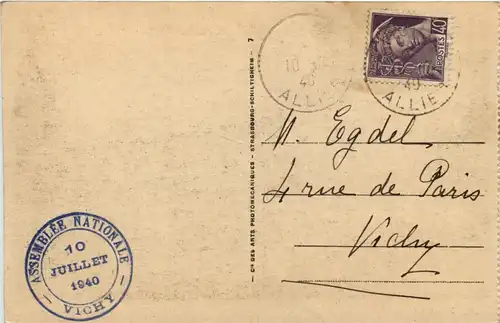 ASSEMBLÉE NATIONALE
10
JUILLET
1940
— VICHY —
Cie DES ARTS PHOTOMECANIQUES - STRASBOURG-SCHILTIGHEIM - 7
10
40
ALLIE
POSTES 40
40
ALLIE
M. Egdel
4 rue de Paris
Vichy